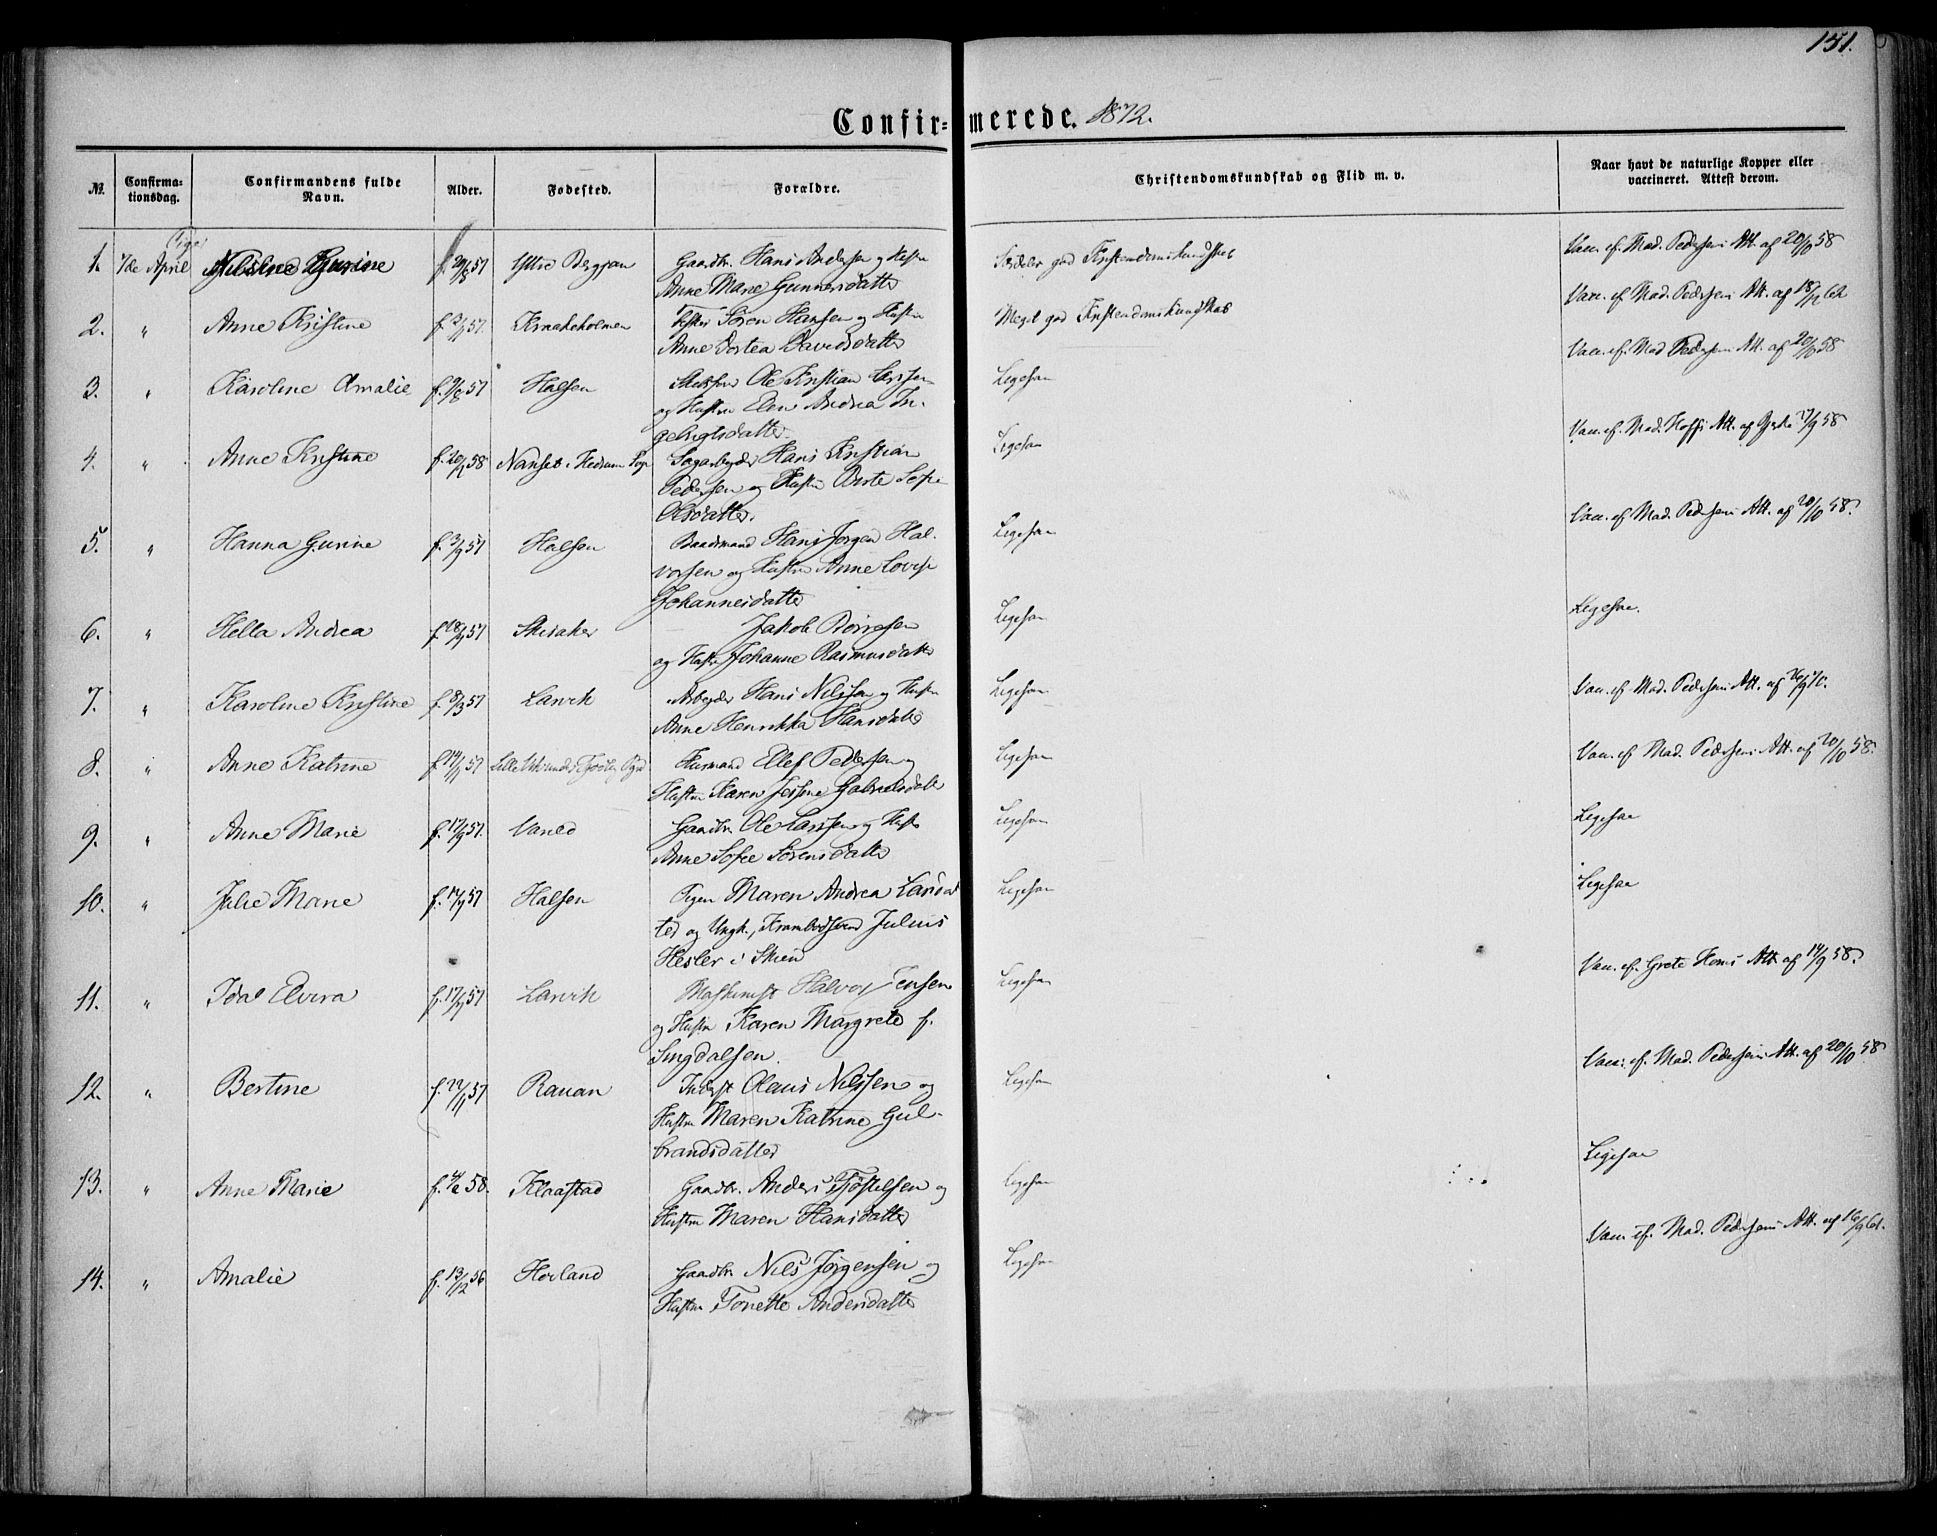 151.
Confirmerede. 1872.
No. Confirmationsdag. Confirmandens fulde Navn. Alder. Fødested. Forældre. Christendomskundskab og Flid m. v. Naar havt de naturlige Kopper eller vaccineret. Attest derom.
Piger
1. 7de April Gurine f. 20/8 57 Yttre Bergan Gaardbr. Hans Andersen og Hustru
Anne Marie Gunnersdatter
Særdeles god Kristendomskundskab
Vac. ef. Mad. Pedersens Att. af 20/10 58
2. " Anne Kristine f. 57. Krakeholmen Fisker Søren Hansen og Hustru
Anne Dortea Davidsdatter
Meget god Kristendomskundskab
Vac. ef. Mad. Pedersens Att. af 62
3. " Karoline Amalie f. 9/8 57 Halsen Ole Kristian Larsen
og Hustru Elen Andrea In-
gebrigtsdatter
Ligesaa
Vac. ef. Mad Pedersens Att. af 20/10 58
4. " Anne Kristine f. 20/1 58 Nanset i Hedrum Sogn Sagarbeyder Hans Kristian
Pedersen og Hustru Berte Sofie
Olsdatter.
Ligesaa
Vac. ef. Mad. Hoffs Att. af 17/9 58
5. " Hanna Gurine f. 3/9 57 Halsen Baadsmand Hans Jørgen Hal-
vorsen og Hustru Anne Lovise
Johannesdatter
Ligesaa
Vac. ef. Mad. Pedersens Att. af 20/10 58.
6. " Hella Andrea f. 18/9 57 Skisaker Jakob Børresen
og Hustru Johanne Rasmusdatter
Ligesaa
Ligesaa.
7. " Karoline Kristine f. 8/3 57 Larvik Arbeyder Hans Nilssen og Hustru
Anne Henrikka Hansdatter
Ligesaa
Vac. ef. Mad. Pedersens Att. af 26/9 70.
8. " Anne Katrine f. 14/1 57 Lille Husmand Ellef Pedersen og
Hustru Karen Jessine Gabrielsdatter
Ligesaa
Vac. ef. Mad. Pedersens Att. af 20/10 58.
9. " Anne Marie f. 17/9 57. Varild Gaardbr. Ole Larssen og Hustru
Anne Sofie Sørensdatter
Ligesaa
Ligesaa
10. " Julie Marie f. 57 Halsen Pigen Maren Andrea Larsdat
ter og Ungk., Krambodsvend Julius
Hesler i Skien
Ligesaa
Ligesaa
11. " Ida Elvira f. 17/7 57 Larvik Maskinist Halvor Jensen
og Hustru Karen Margrete f.
Singdalsen.
Ligesaa
Vac. ef. Grete Homs Att. af 14/9 58.
12. " Bertine f. 22/11 57 Rauan Inderst Olaus Nilssen og
Hustru Maren Katrine Gul-
brandsdatter
Ligesaa
Vac. ef. Mad. Pedersens Att. af 20/10 58
13. " Anne Marie f. 58. Klaastad Gaardbr. Anders Tjøstelsen og
Hustru Maren Hansdatter
Ligesaa
Ligesaa
14. " Amalie f. 13/12 56 Hovland Gaardbr. Nils Jørgensen og
Hustru Tonette Andersdatter
Ligesaa
Vac. ef. Mad. Pedersens Att. af 16/9 61.